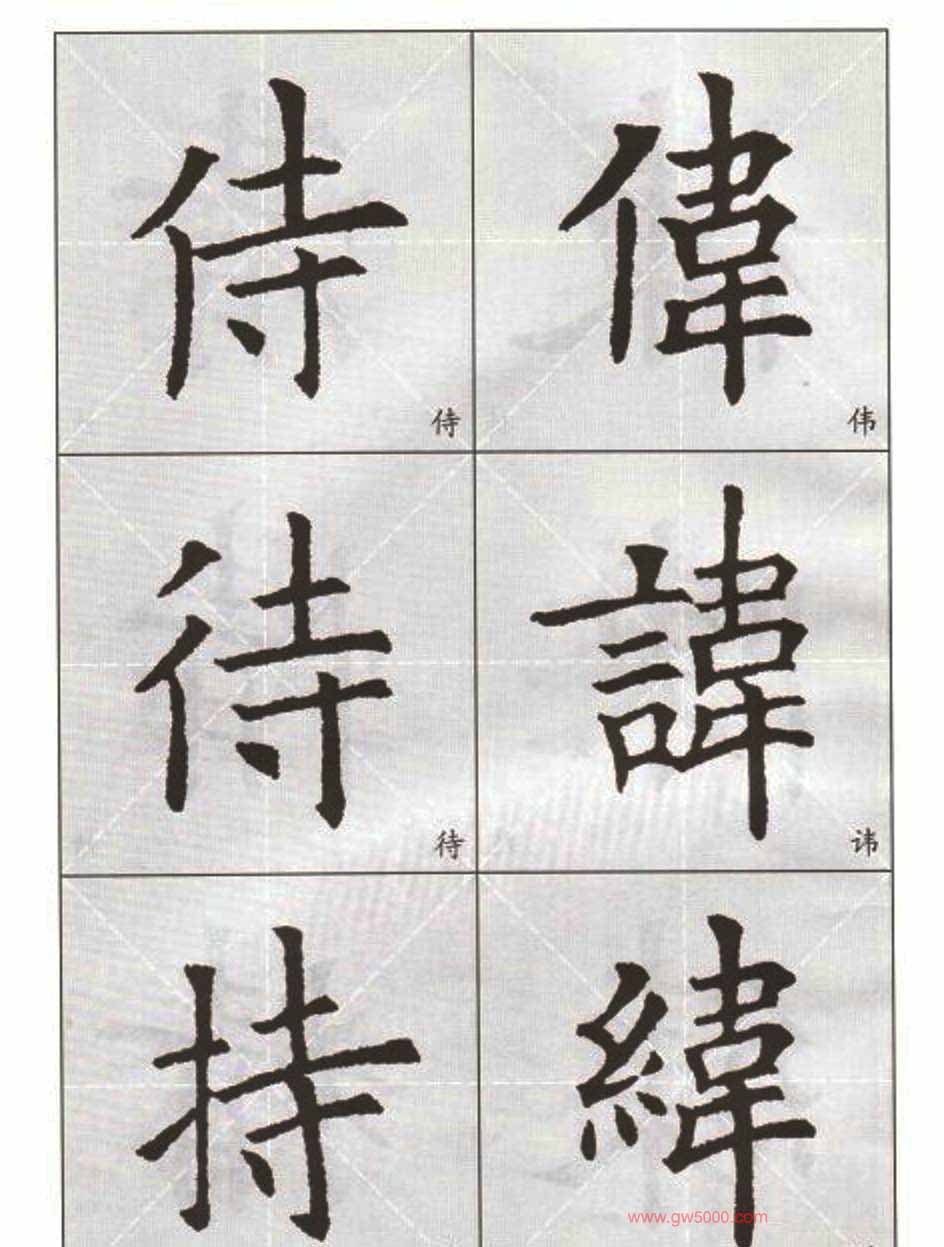 侍 偉
侍 伟
待 諱
待 讳
持 緯
www.gw5000.com